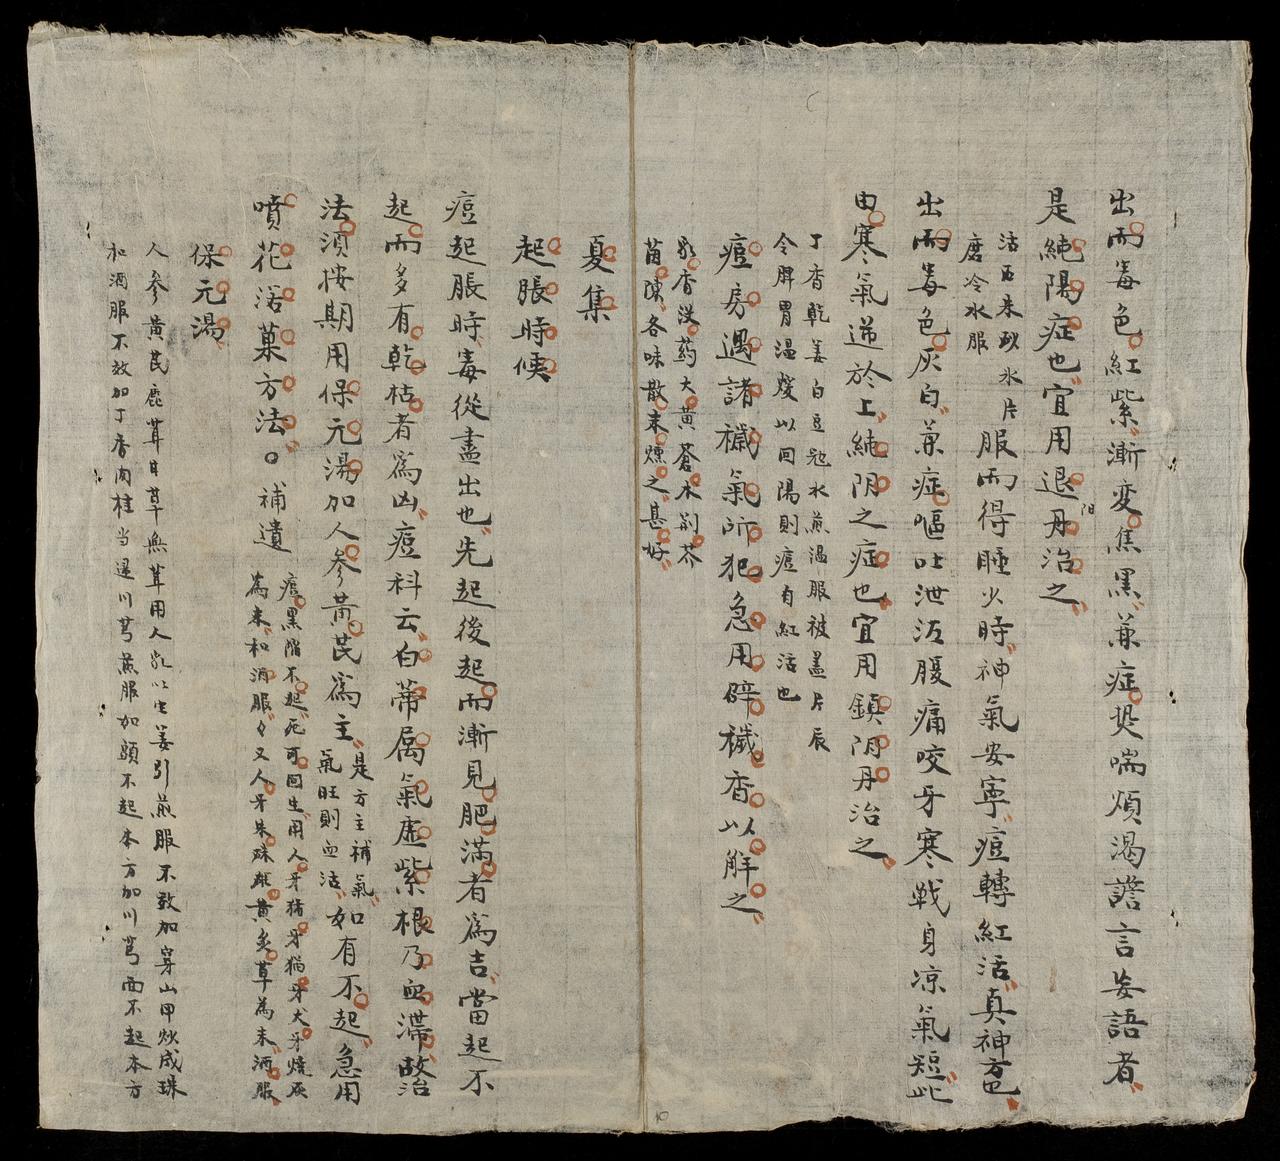 出而毒色紅紫漸变焦黑兼症煩喘煩渴譫言妄語者
是純陽症也宜用退阳丹治之
活石朱砂氷片
磨冷水服
服而得睡少時神氣安寧痘轉紅活真神方也
出而毒色灰白兼症嘔吐泄泻腹痛咬牙寒戦身凉氣短此
由寒氣逆於上純阴之症也宜用鎮阴丹治之
丁香乾姜白豆冦水煎温服被盖片辰
令脾胃温煖以回陽則痘自紅活也
痘房遇諸穢氣所犯急用辟穢香以解之
乳香没药大黄蒼木荊芥
茵陳各味散末燻之甚好
夏集
起脹時候
痘起脹時毒從盡出也先起後起而漸見肥滿者為吉當起不
起而多有乾枯者為凶痘科云白蒂属氣虚紫根乃血滞故治
法湏按期用保元湯加人参黄芪爲主
是方主補氣
氣旺則血活
如有不起急用
噴花活菓方法○補遺
痘黑陷不起死可回生用人牙猪牙猫牙犬牙燒灰
為末和酒服々又人牙朱珠雄黄炙草為末酒服
保元湯
人参黄芪鹿茸甘草無茸用人乳以生姜引煎服不效加穿山甲炒成珠
和酒服不效加丁香肉桂当歸川芎煎服如頭不起本方加川芎面不起本方
10